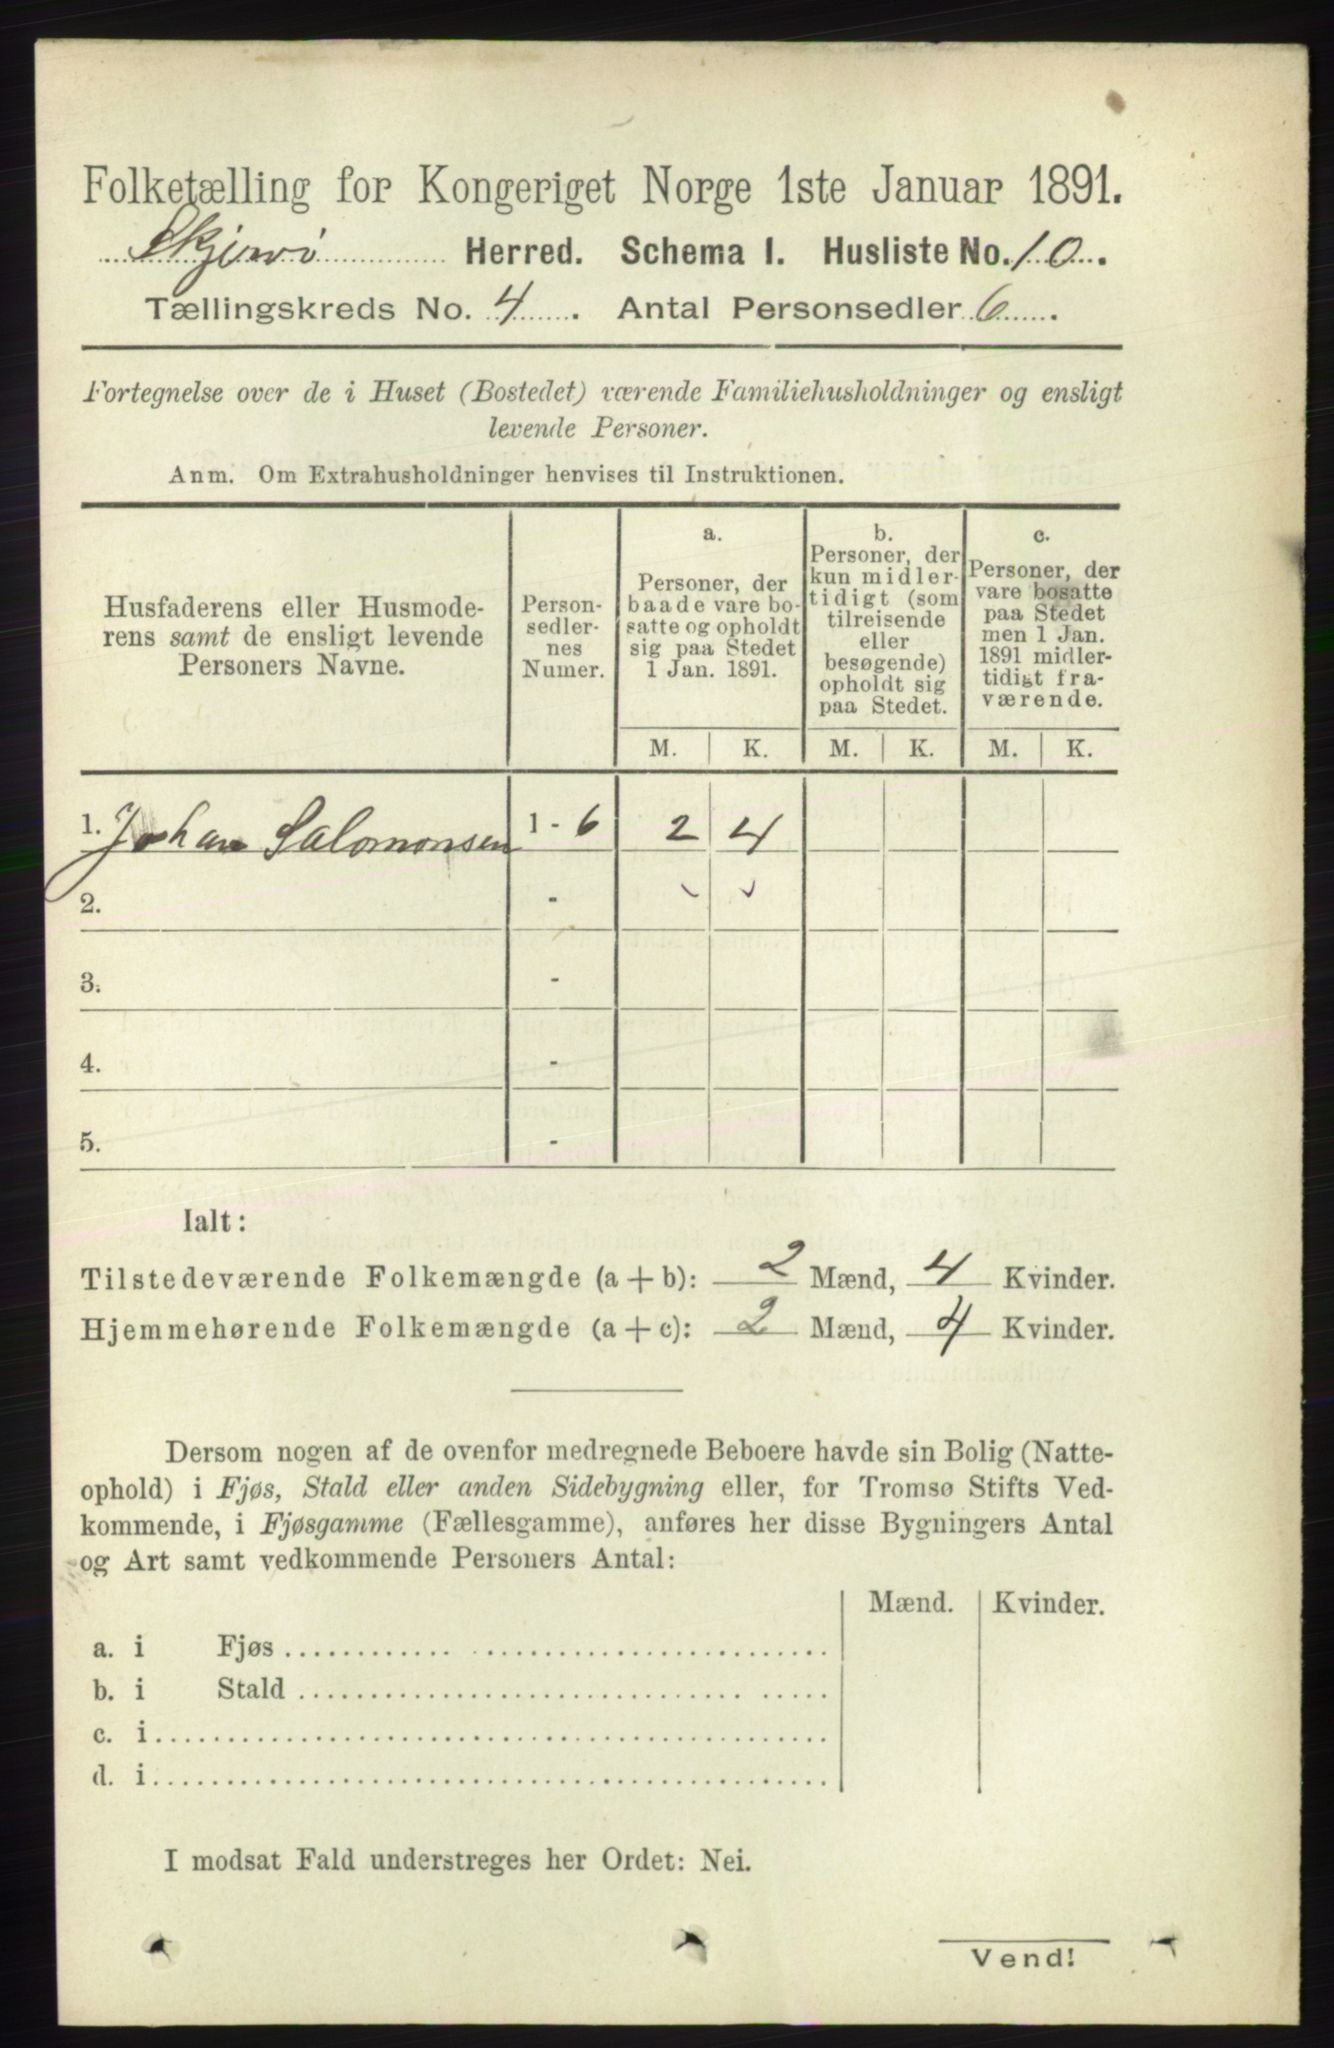 Folketælling for Kongeriget Norge 1ste Januar 1891.
Skjervø Herred. Schema I. Husliste No. 10.
Tællingskreds No. 4. Antal Personsedler 6.
Fortegnelse over de i Huset (Bostedet) værende Familiehusholdninger og ensligt
levende Personer.
Anm. Om Extrahusholdninger henvises til Instruktionen.
Husfaderens eller Husmode-
rens samt de ensligt levende
Personers Navne.
Person-
sedler-
nes
Numer.
a.
Personer, der
baade vare bo-
satte og opholdt
sig paa Stedet
1 Jan. 1891.
b.
Personer, der
kun midler-
tidigt (som
tilreisende
eller
besøgende)
opholdt sig
paa Stedet.
c.
Personer, der
vare bosatte
paa Stedet
men 1 Jan.
1891 midler-
tidigt fra-
værende.
M. K. M. K. M. K.
1. Johan Salomonsen 1 - 6 2 4
2. -
3. -
4. -
5. -
Ialt:
Tilstedeværende Folkemængde (a + b): 2 Mænd, 4 Kvinder.
Hjemmehørende Folkemængde (a + c): 2 Mænd, 4 Kvinder.
Dersom nogen af de ovenfor medregnede Beboere havde sin Bolig (Natte-
ophold) i Fjøs, Stald eller anden Sidebygning eller, for Tromsø Stifts Ved-
kommende, i Fjøsgamme (Fællesgamme), anføres her disse Bygningers Antal
og Art samt vedkommende Personers Antal:
Mænd. Kvinder.
a. i Fjøs
b. i Stald
c. i
d. i
I modsat Fald understreges her Ordet: Nei.
Vend!